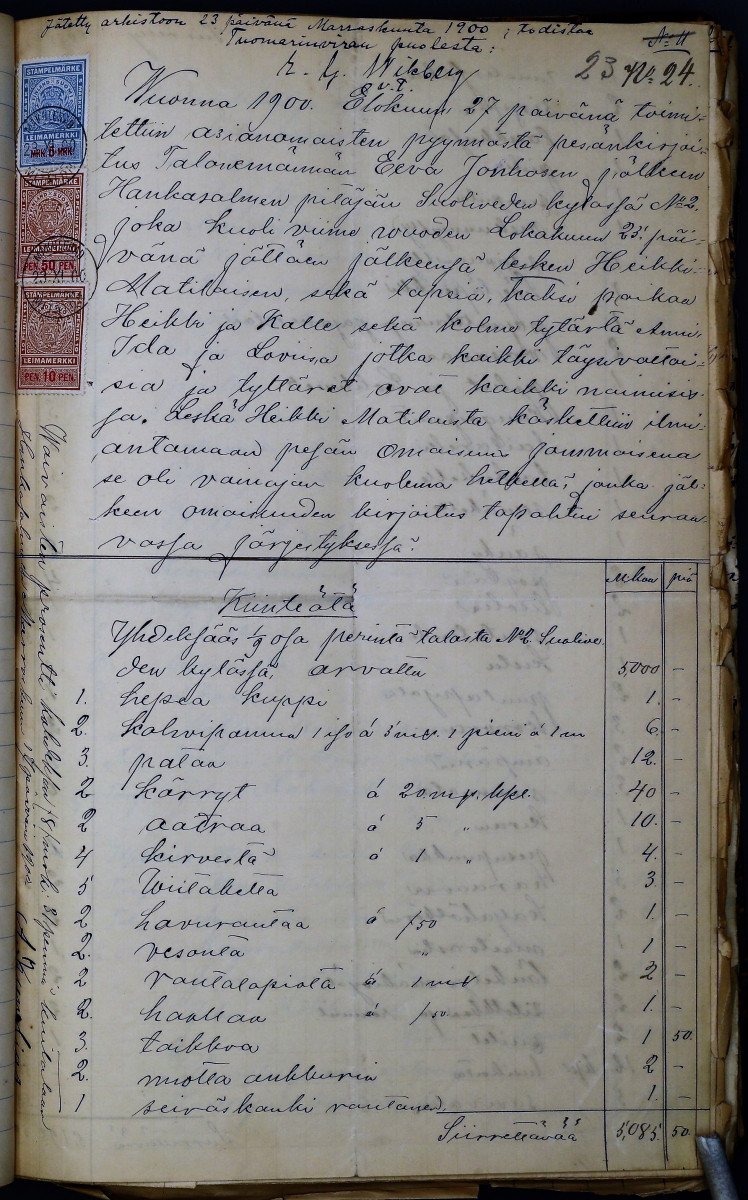 Jätetty arkistoon 23 päivänä Marraskuuta 1900, todistaa
Tuomarinviran puolesta:
E. G. Wikberg
v.t.
No 11
23 No 24.
STÄMPELMÄRKE
LEIMAMERKKI
STÄMPELMÄRKE
LEIMAMERKKI
PEN. 50 PEN.
STÄMPELMÄRKE
LEIMAMERKKI
PEN. 10 PEN.
Wuonna 1900. Elokuun 27 päivänä toimi-
tettiin asianomaisten pyynnöstä pesänkirjoi-
tus Talonemännän Eeva Jonhosen jälkeen
Hankasalmen pitäjän Suoliveden kylässä No 2.
joka kuoli viime vuoden Lokakuun 25 päi-
vänä jättäen jälkeensä lesken Heikki
Matilaisen, sekä lapsia, kaksi poikaa
Heikki ja Kalle sekä kolme tytärtä Anni
Ida ja Loviisa jotka kaikki täysivaltai-
sia ja tyttäret ovat kaikki naimisis-
sa. Leskä Heikki Matilaista käskettiin ilmi-
antamaan pesän omaisuus jommoisena
se oli vainajan kuolema hetkellä, jonka jäl-
keen omaisuuden kirjoitus tapahtui seuraa-
vassa järjestyksessä:
Mkaa piä
Kiinteätä
Yhdeksäs 1/9 osa perintä talosta No 2. Suolive
den kylässä, arvattu 5,000 –
1. hepea kuppi 1. –
2. kahvipannua 1 iso á 5 mk. 1 pieni á 1 m 6. –
3. pataa 12. –
2 kärryt á 20 mk. kpl. 40 –
2 aatraa á 5 " 10. –
4 kirvestä á 1 " 4. –
5 Wiitaketta 3. –
2 havurautaa á /50 1. –
2. vesonta " 1 –
2 rautalapiota á 1 mk 2 –
2. haakaa á /50 1. –
3. taikkoa 1 50.
2. nuotta ankkuria 2 –
1 seiväskanki rautanen 1. –
Siirrettävää 5,085 50.
Waivaisten prosentti kahdeksan 8/ mrk: 8/ penniä kuitataan
Hankasalmella Marraskuun päivänä 1900